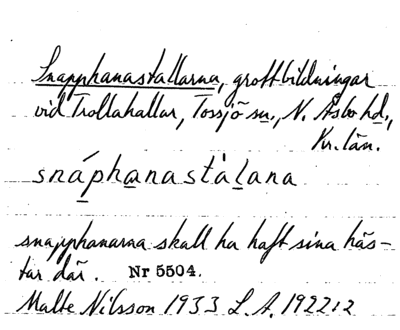 Snapphanastallarna, grottbildningar
vid Trollahallar, Tossjö sn., N. Åsbo hd.,
Kr. län.
snáphanastàlana
snapphanarna skall ha haft sina häs-
tar där. Nr 5504.
Malte Nilsson 1933 L.A. 1922:2